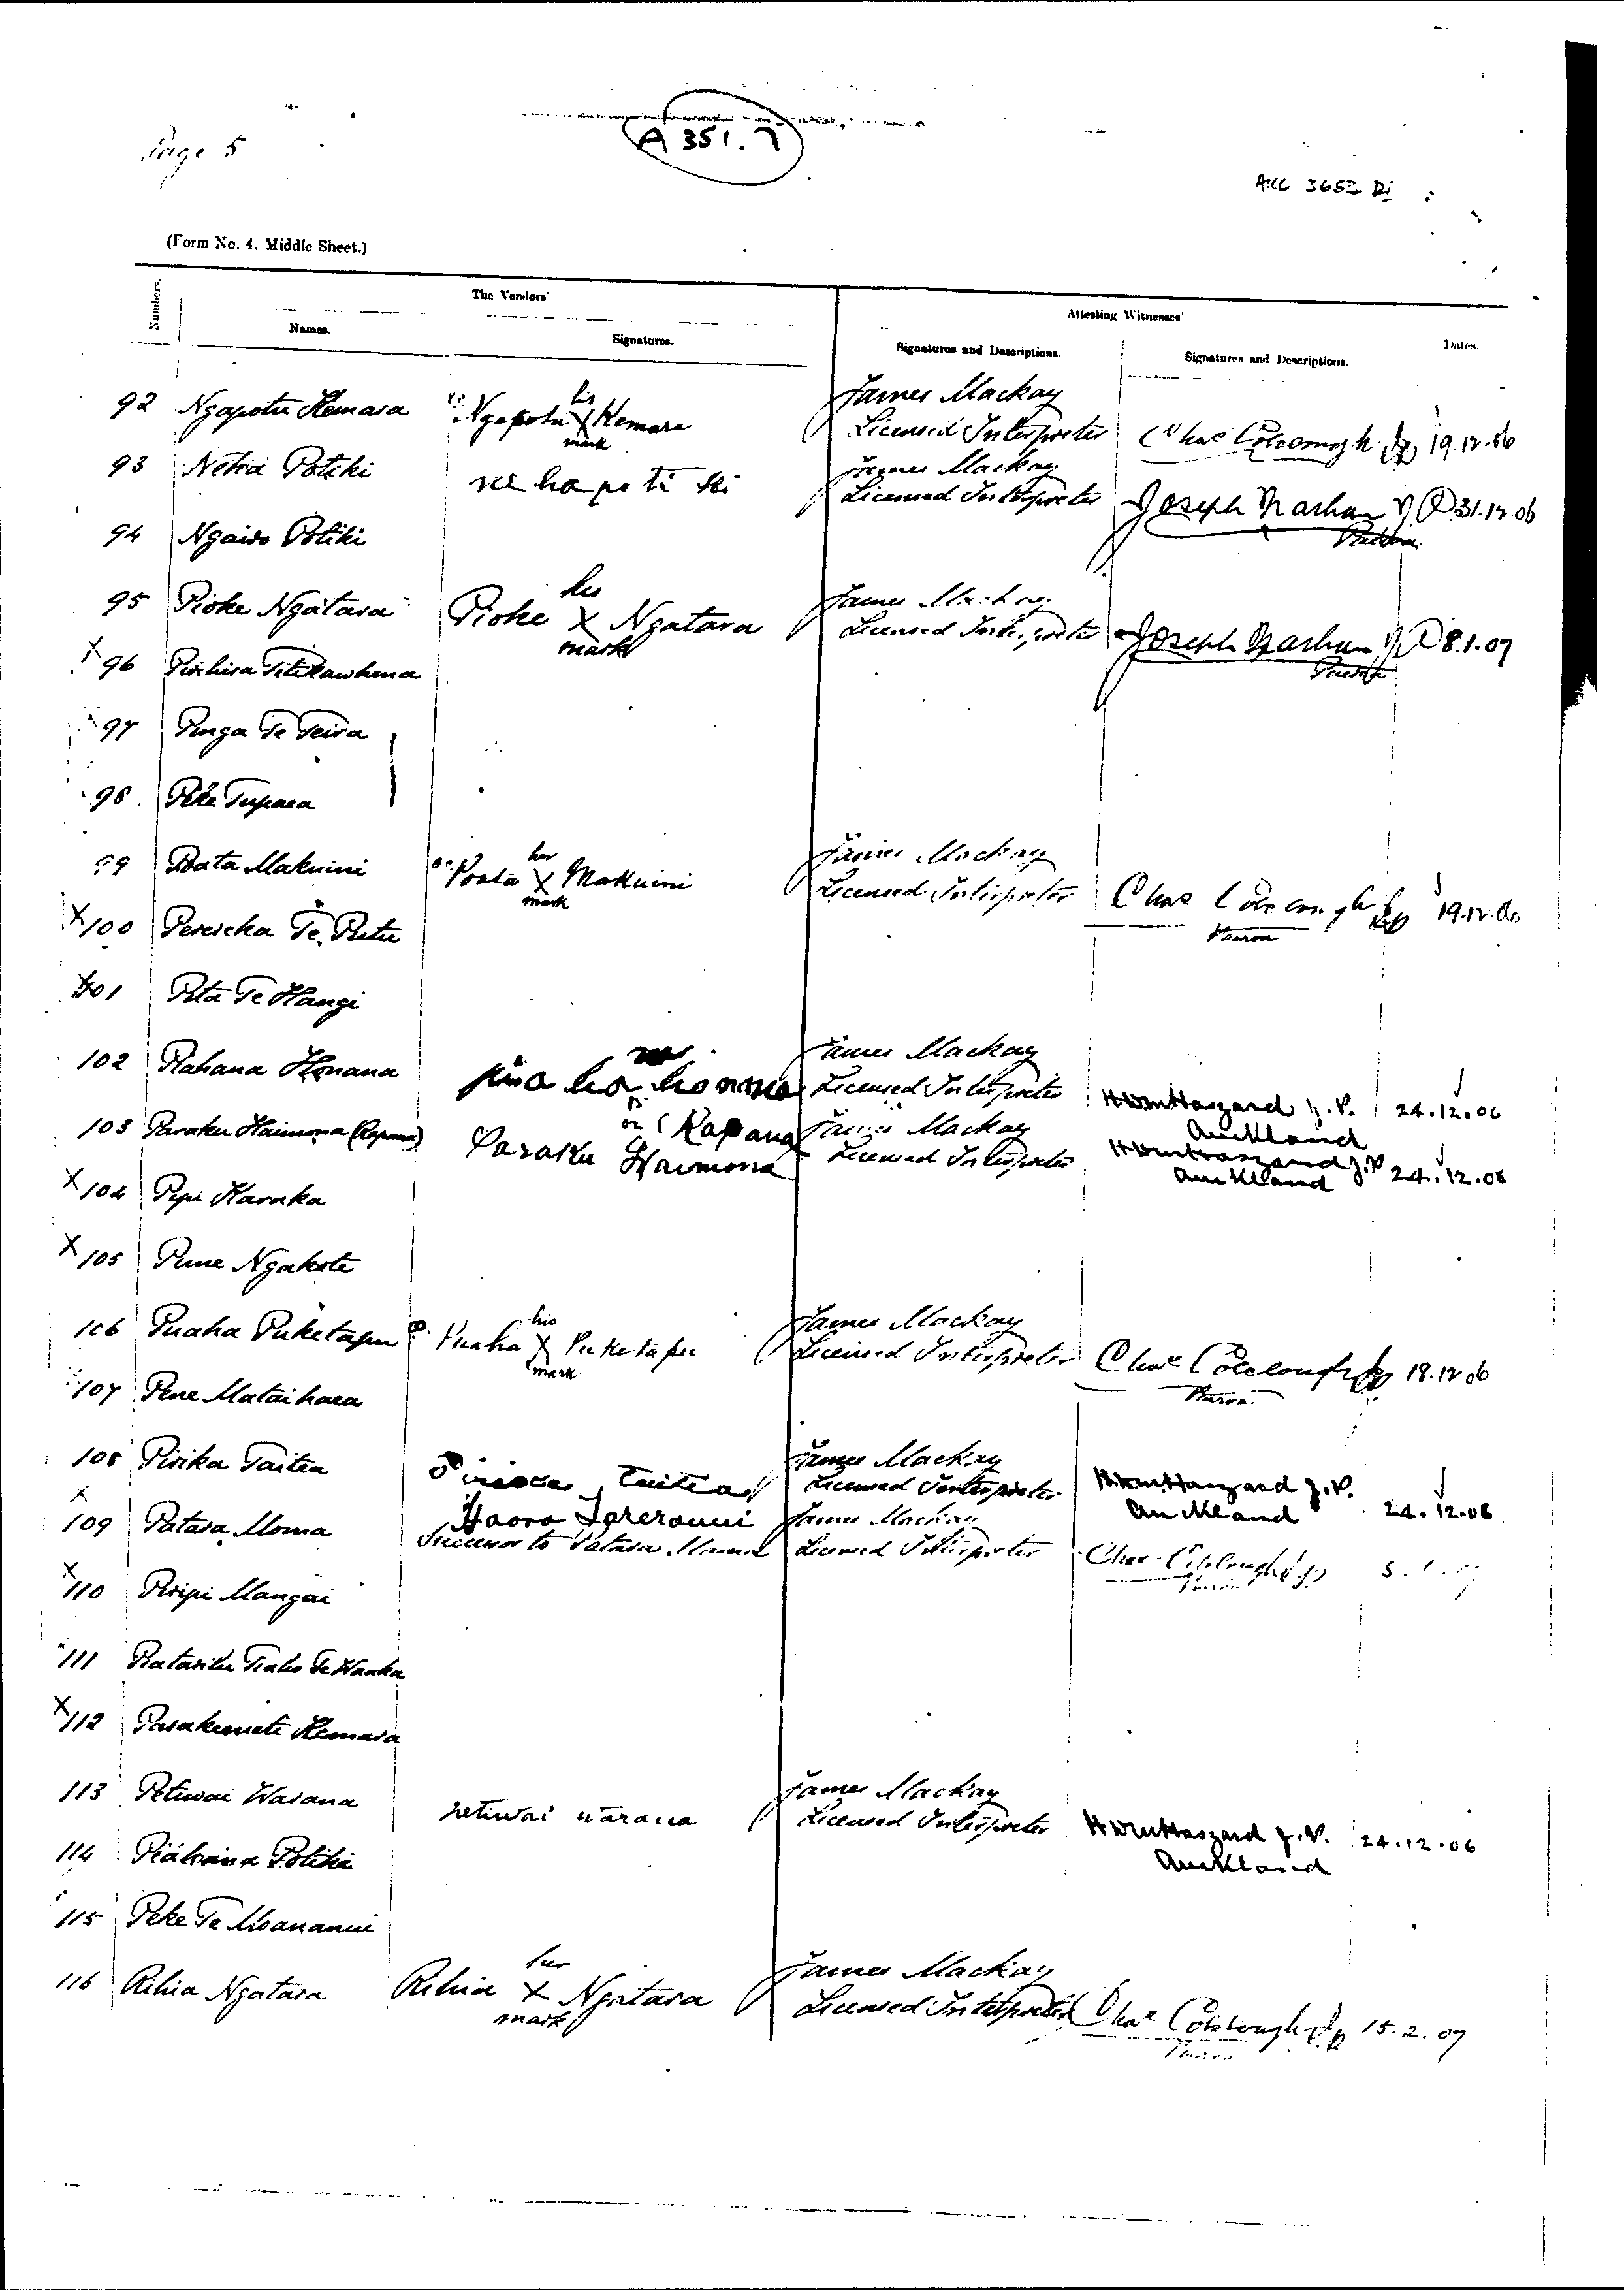 Page 5
A 351.7
ACC 3652 Di
(Form No. 4. Middle Sheet.)
Numbers. The Vendors' Attesting Witnesses'
Names. Signatures. Signatures and Descriptions. Signatures and Descriptions. Dates.
92 Ngapotu Kemara Ngapotu his X mark Kemara James Mackay
Licensed Interpreter Chas Colclough JP 19.12.06
93 Neha Potiki ne ha po ti ki James Mackay
Licensed Interpreter Joseph Nathan JP 31.12.06
Paeroa
94 Ngairo Potiki
95 Pioke Ngatara Pioke his X mark Ngatara James Mackay
Licensed Interpreter Joseph Nathan JP 8.1.07
Paeroa
X 96 Pirihira Titikawhena
97 Punga Te Teira
98 Peke Tupaea
99 Poata Makuini Poata her X mark Makuini James Mackay
Licensed Interpreter Chas Colclough JP 19.12.06
Paeroa
X 100 Perereka Te Putu
X 101 Pita Te Hangi
102 Piahana Honana James Mackay
Licensed Interpreter H Wm Haszard J.P. 24.12.06
Auckland
103 Paraku Haimona (Rapana) Paraku Haimona or (Rapana James Mackay
Licensed Interpreter H Wm Haszard J.P. 24.12.06
Auckland
X 104 Pepi Karaka
X 105 Pune Ngakote
106 Puaha Puketapu Puaha his X mark Puketapu James Mackay
Licensed Interpreter Chas Colclough JP 18.12.06
Paeroa
107 Pene Mataihaea
108 Pirika Taitea Taitea James Mackay
Licensed Interpreter H Wm Haszard J.P.
Auckland 24.12.06
X 109 Patara Moma Haora Tareranui James Mackay
Successor to Patara Moma Licensed Interpreter Chas Colclough JP
Paeroa
X 110 Piripi Mangai
111 Te Waaka
X 112 Kemara
113 Petiwai Warana petiwai warana James Mackay
Licensed Interpreter H Wm Haszard J.P. 24.12.06
Auckland
114 Piahana Potiki
115 Peke Te Moananui
116 Rihia Ngatara Rihia her X mark Ngatara James Mackay
Licensed Interpreter Chas Colclough JP 15.2.07
Paeroa